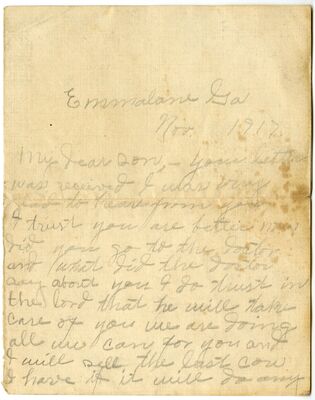 Emmalane Ga
Nov. 1917
My dear son, - your letter
was received I was very
glad to hear from you
I trust you are better now
did you go to the doctor
and what did the doctor
say about you I do trust in
the lord that he will take
care of you we are doing
all we can for you and
I will sell the last cow
I have if it will do any